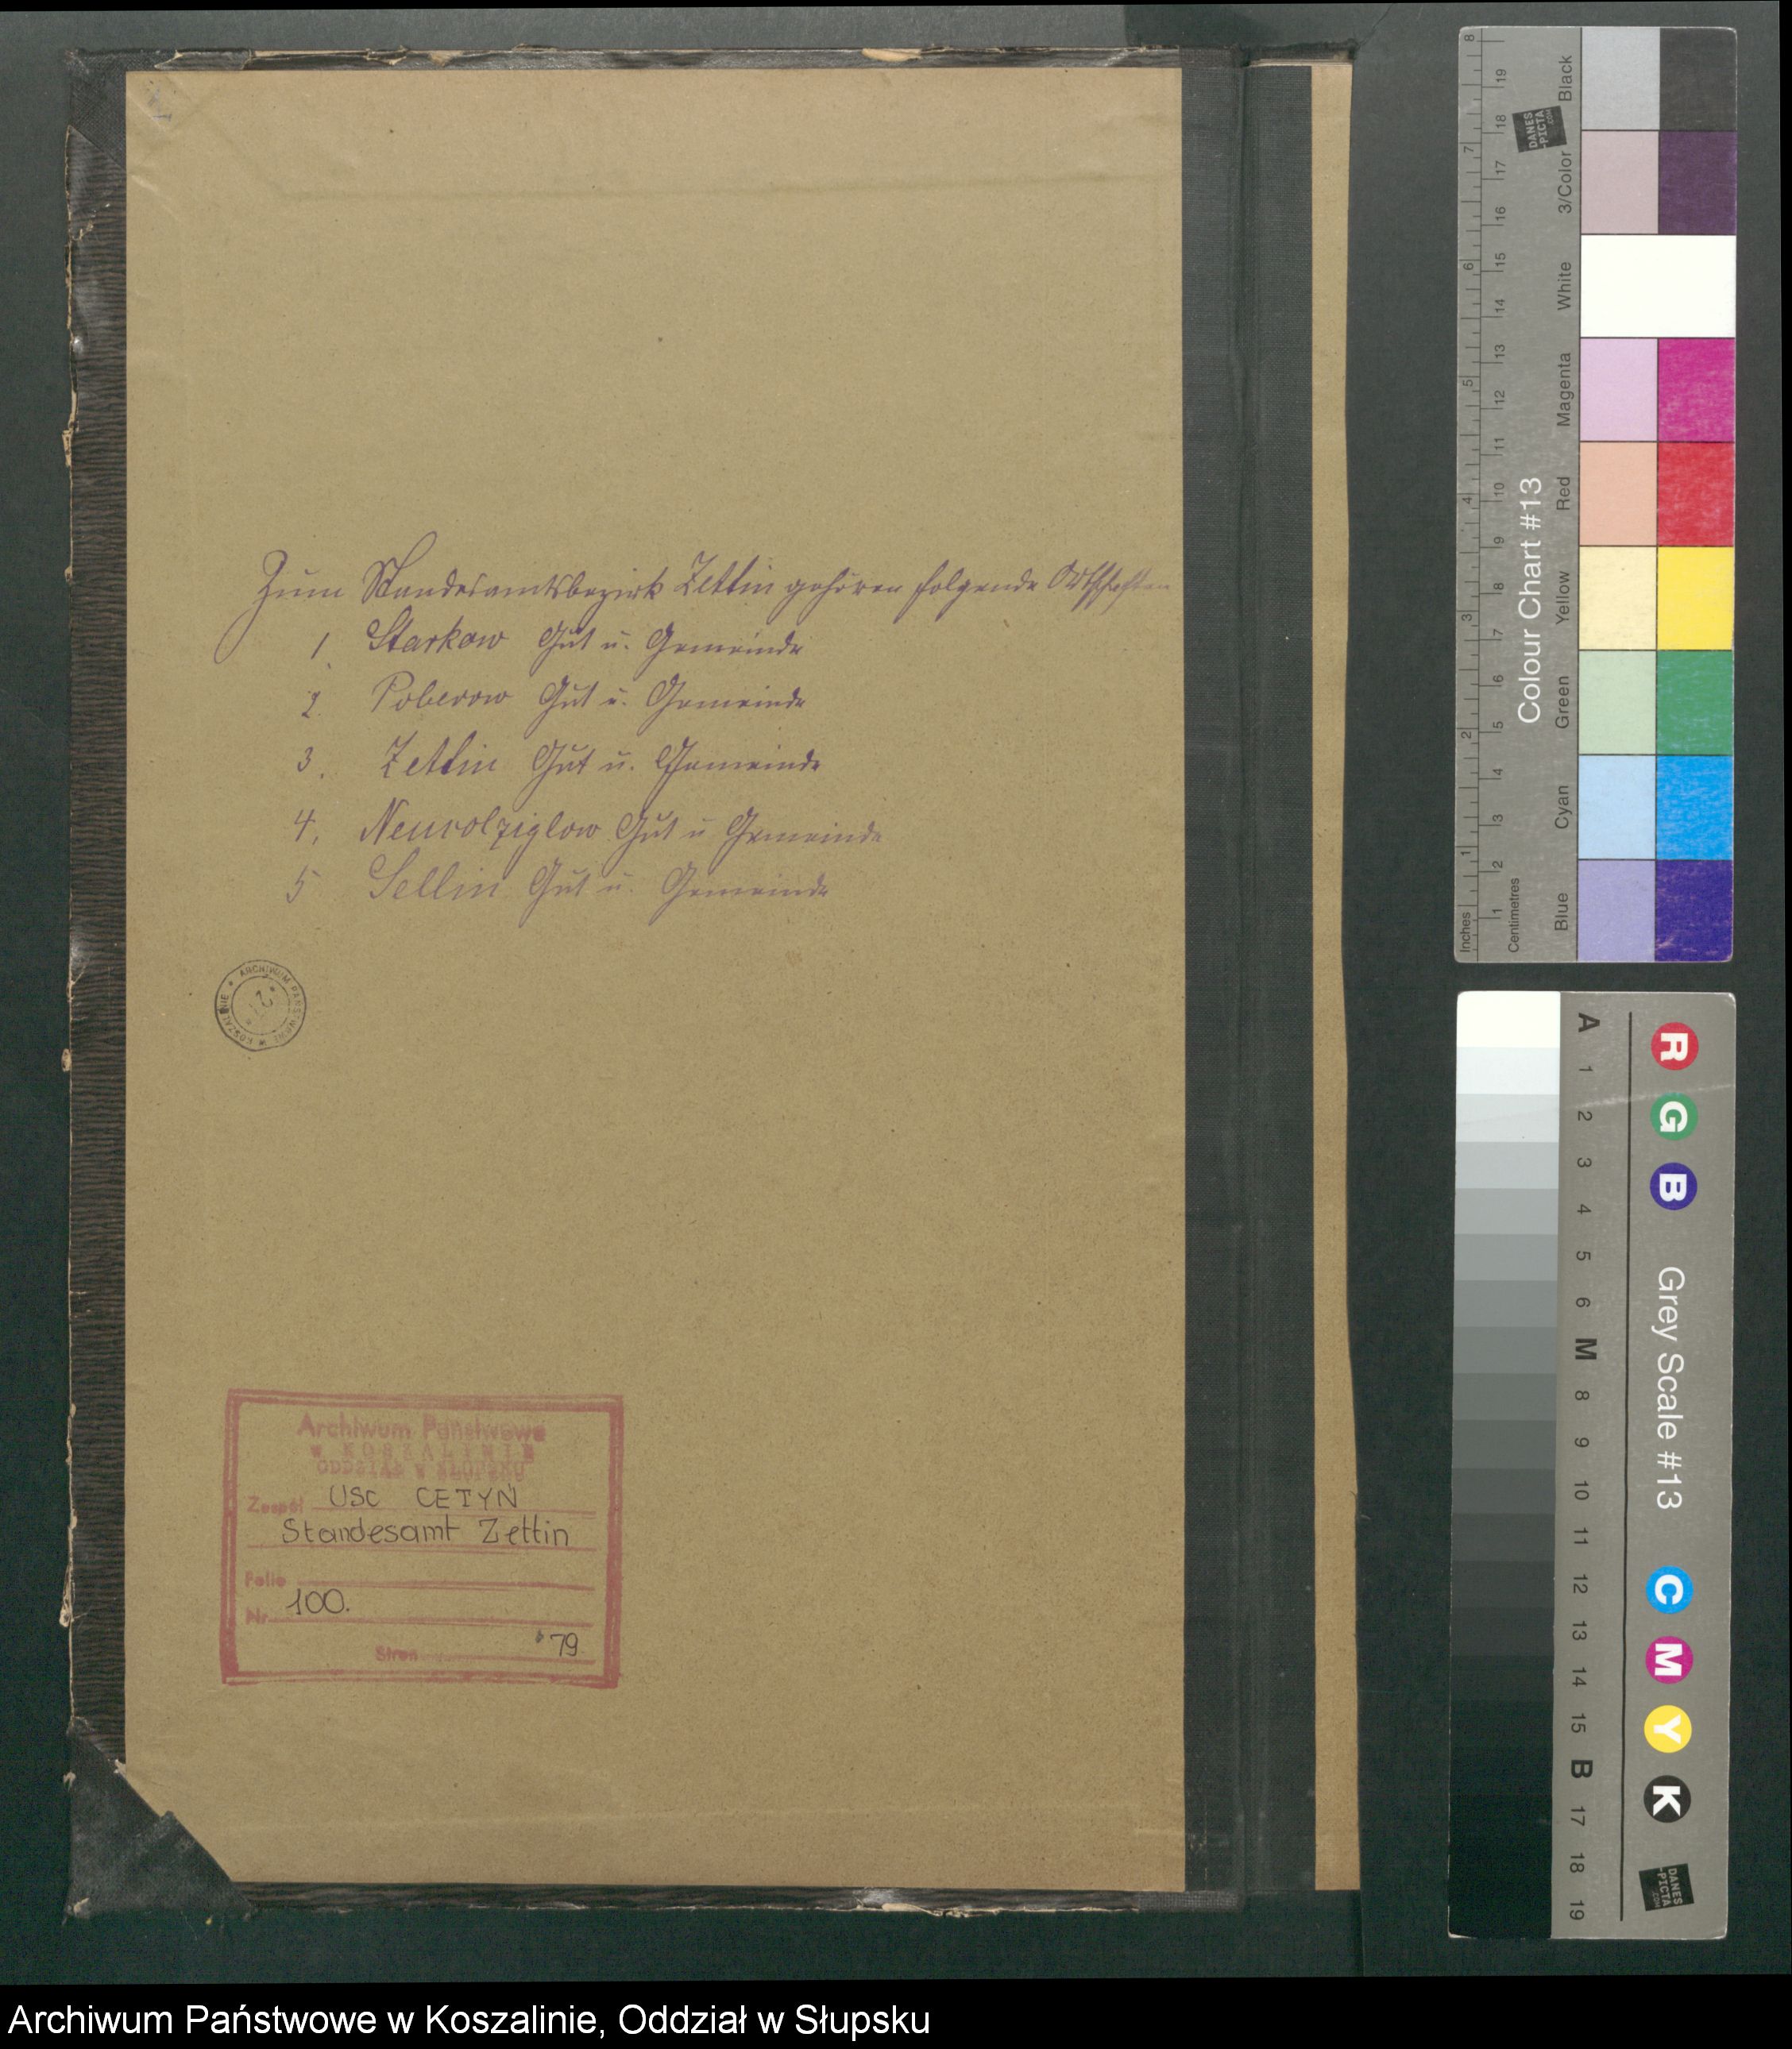 Zum Standesamtsbezirk Zettin gehören folgende Ortschaften
1. Starkow Gut u. Gemeinde
2. Poberow Gut u. Gemeinde
3. Zettin Gut u. Gemeinde
4. Neuvolziglow Gut u Gemeinde
5 Sellin Gut u. Gemeinde
ARCHIWUM PAŃSTWOWE W KOSZALINIE
Archiwum Państwowe
w KOSZALINIE
ODDZIAŁ W SŁUPSKU
Zespół USC CETYŃ
Standesamt Zettin
Folio
Nr 100.
Stron 79
Colour Chart #13
Blue Cyan Green Yellow Red Magenta White 3/Color Black
Inches 1 2 3 4 5 6 7 8
Centimetres 1 2 3 4 5 6 7 8 9 10 11 12 13 14 15 16 17 18 19
DANES
-PICTA
.COM
Grey Scale #13
R G B C M Y K
A 1 2 3 4 5 6 M 8 9 10 11 12 13 14 15 B 17 18 19
DANES
-PICTA
.COM
Archiwum Państwowe w Koszalinie, Oddział w Słupsku